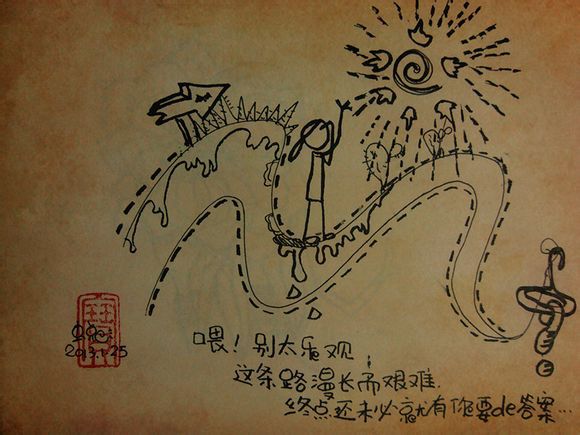 喂！别太乐观，
这条路漫长而艰难.
终点还未必就有你要de答案...
2013.1.25